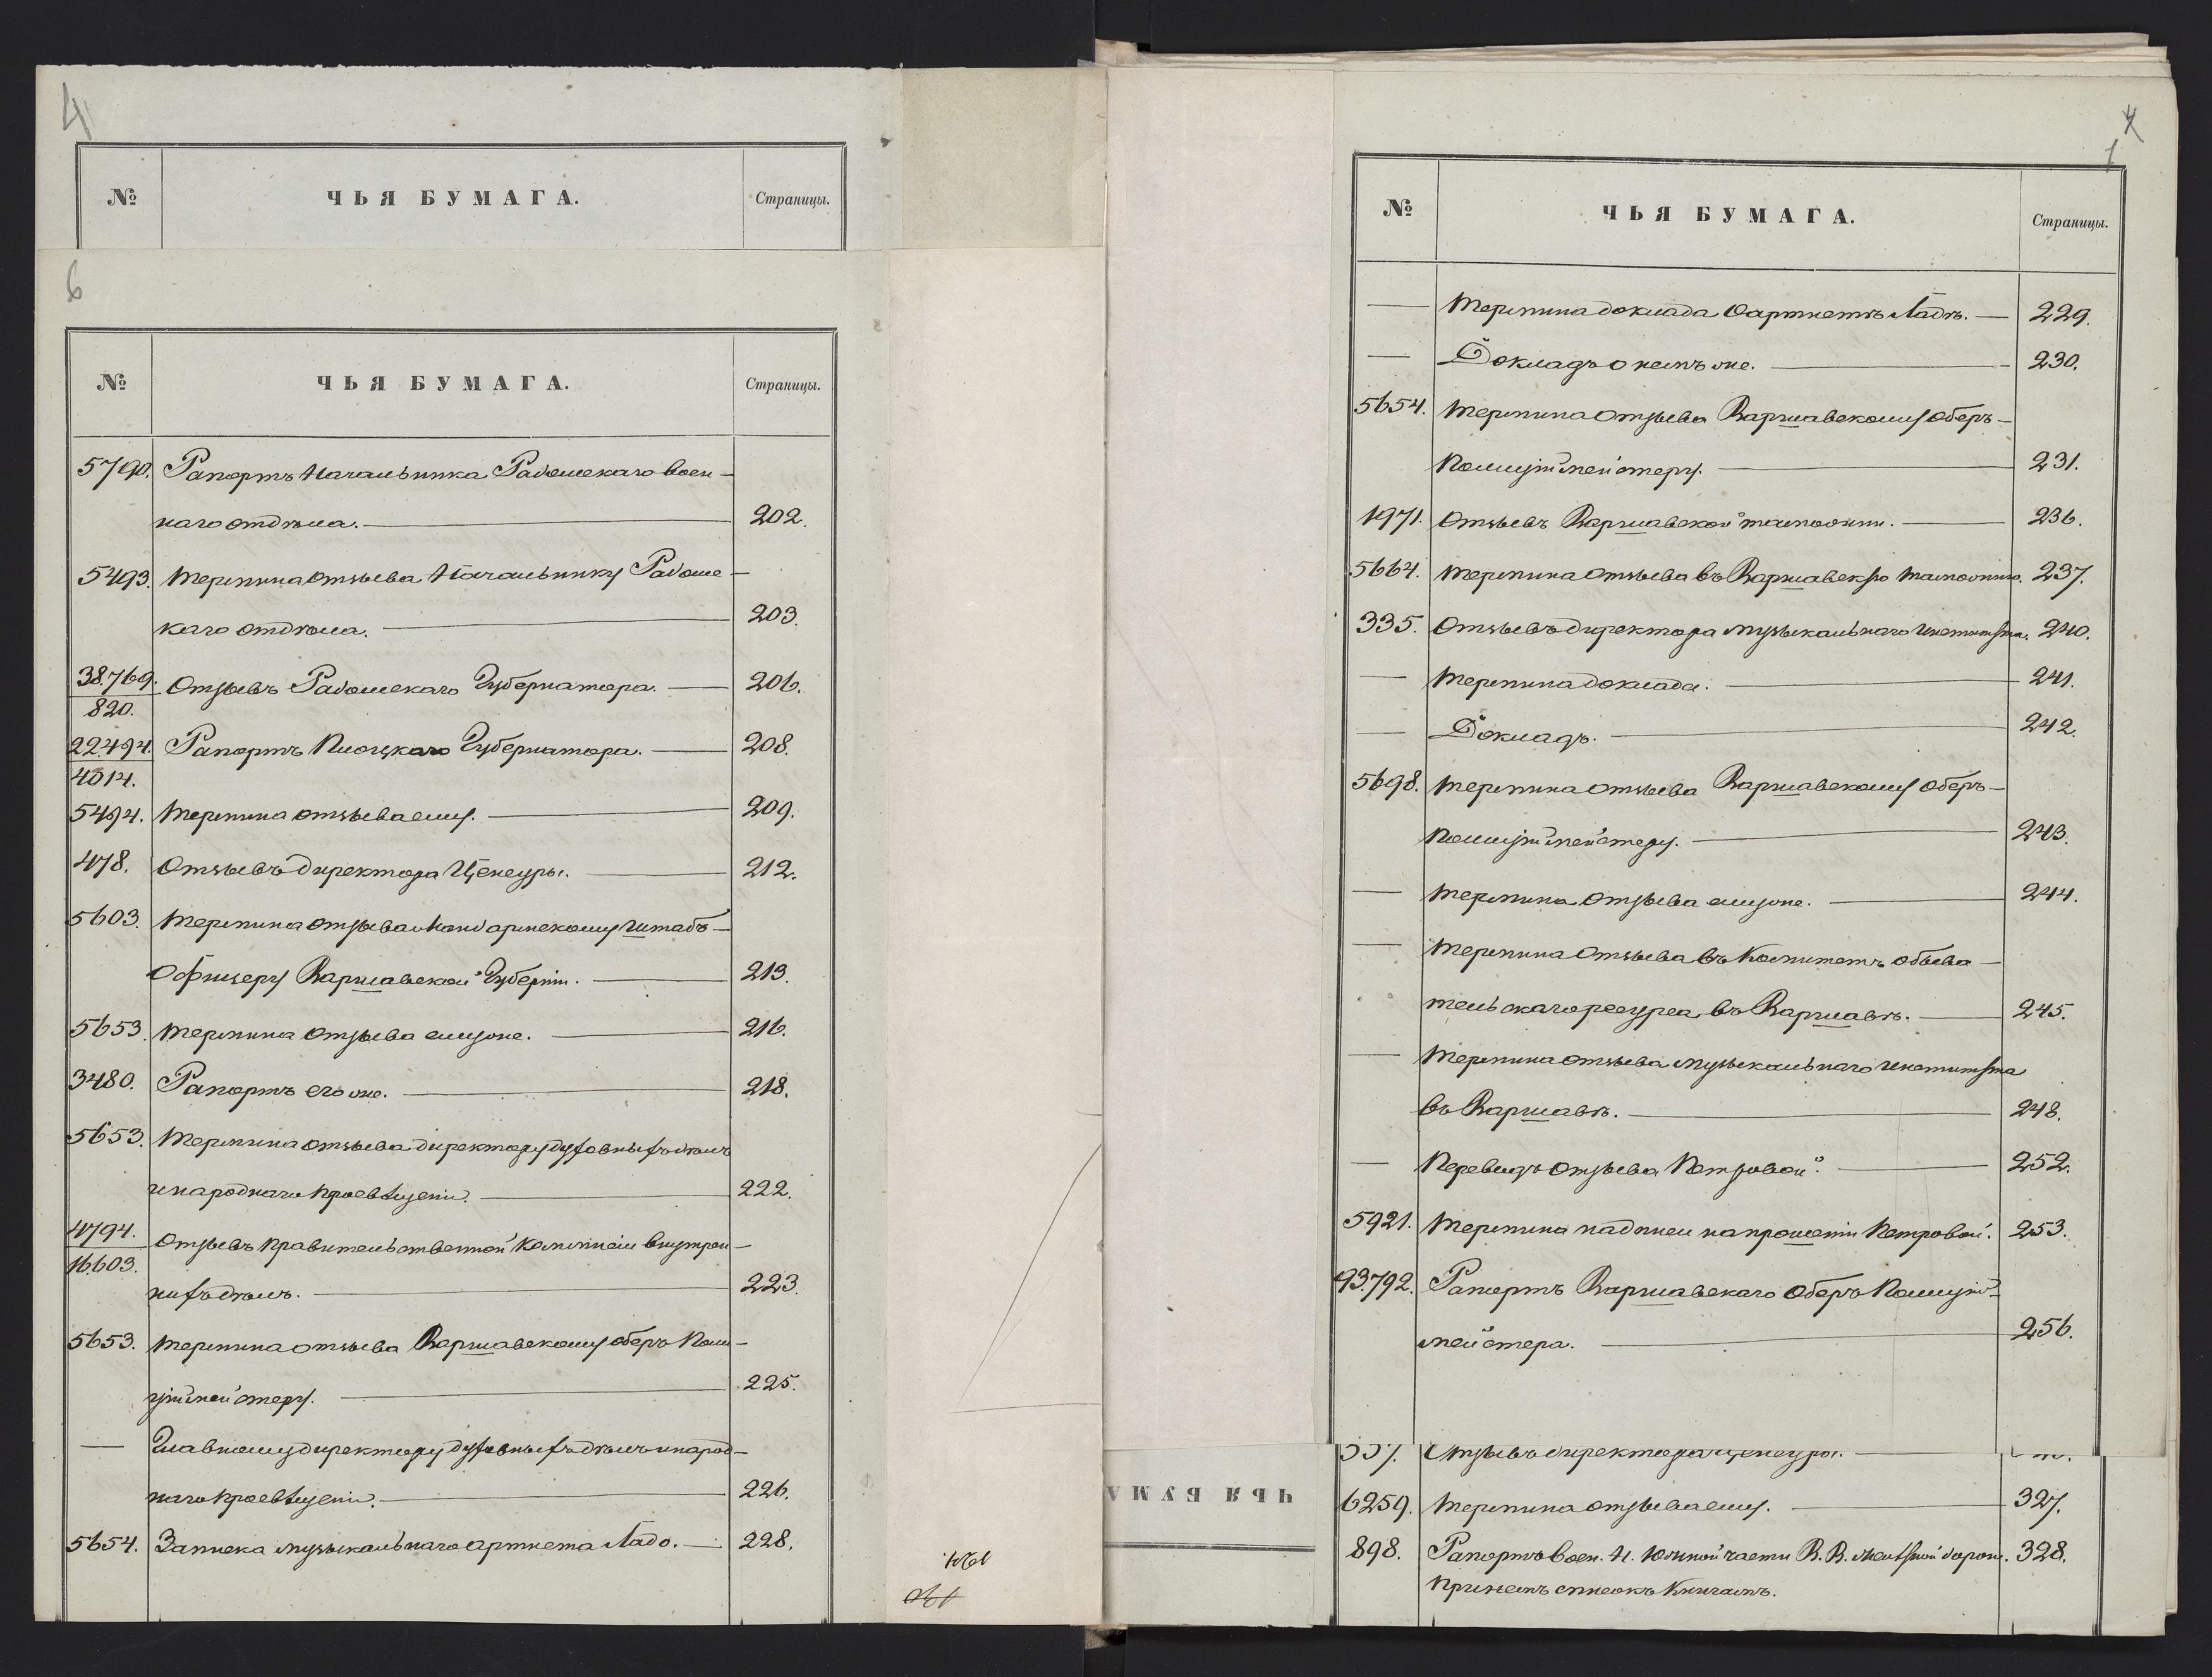 4
№ ЧЬЯ БУМАГА. Страницы.
6
№ ЧЬЯ БУМАГА. Страницы.
5790. Рапортъ Начальника Радомскаго воен-
наго отдѣла. — 202.
5493. Черпина отзыва Начальнику Радомс-
каго отдѣла. — 203.
38.769. Отзывъ Радомскаго Губернатора. — 206.
820.
22494. Рапортъ Плоцкаго Губернатора. — 208.
4014.
5494. Черпина отзыва ему. — 209.
478. Отзывъ директора Ценсуры. — 212.
5603. Черпина отзыва Жандармскому штабъ-
офицеру Варшавской Губерніи. — 213.
5653. Черпина отзыва емуже. — 216.
3480. Рапортъ его же. — 218.
5653. Черпина отзыва директору духовныхъ дѣлъ
и народнаго просвѣщенія. — 222.
4794. Отзывъ Правительственной Коммисіи внутрен-
16.603.
нихъ дѣлъ. — 223.
5653. Черпина отзыва Варшавскому оберъ Поли-
ціймейстеру. — 225.
— Главному директору духовныхъ дѣлъ и народ-
наго просвѣщенія. — 226.
5654. Записка музыкальнаго артиста Ладо. — 228.
№ ЧЬЯ БУМАГА. Страницы.
— Черпина доклада о артистѣ Ладѣ. — 229.
— Докладъ о немъ же. — 230.
5654. Черпина отзыва Варшавскому оберъ-
Полиціймейстеру. — 231.
1971. Отзывъ Варшавской таможни. — 236.
5664. Черпина отзыва въ Варшавскую таможню. 237.
335. Отзывъ директора музыкальнаго института. 240.
— Черпина доклада. — 241.
— Докладъ. — 242.
5698. Черпина отзыва Варшавскому оберъ-
Полиціймейстеру. — 243.
— Черпина отзыва емуже. — 244.
— Черпина отзыва въ Комитетъ обыва-
тельскаго ресурса въ Варшавѣ. — 245.
— Черпина отзыва музыкальнаго института
въ Варшавѣ. — 248.
— Переводъ отзыва Петровой. — 252.
5921. Черпина надписи на прошеніи Петровой. 253.
93.792. Рапортъ Варшавскаго Оберъ Полицій-
мейстера. — 256.
Отзывъ директора Ценсуры. —
ЧЬЯ БУМА
6259. Черпина отзыва ему. — 327.
898. Рапортъ Воен. Н. Южной части В. В. желѣзной дорог. 328.
При немъ списокъ книгамъ.